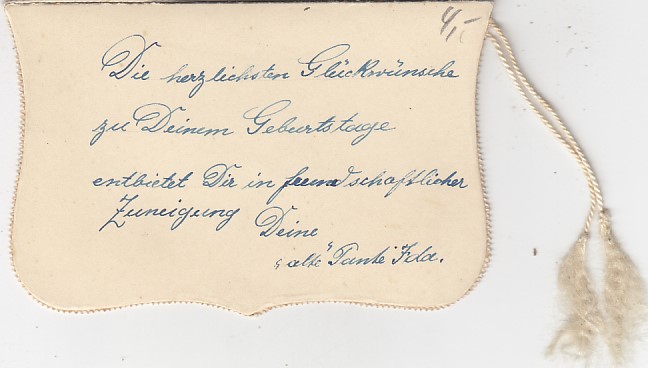 4,-
Die herzlichsten Glückwünsche
zu Deinem Geburtstage
entbietet Dir in freundschaftlicher
Zuneigung
Deine
„alte" Tante Ida.